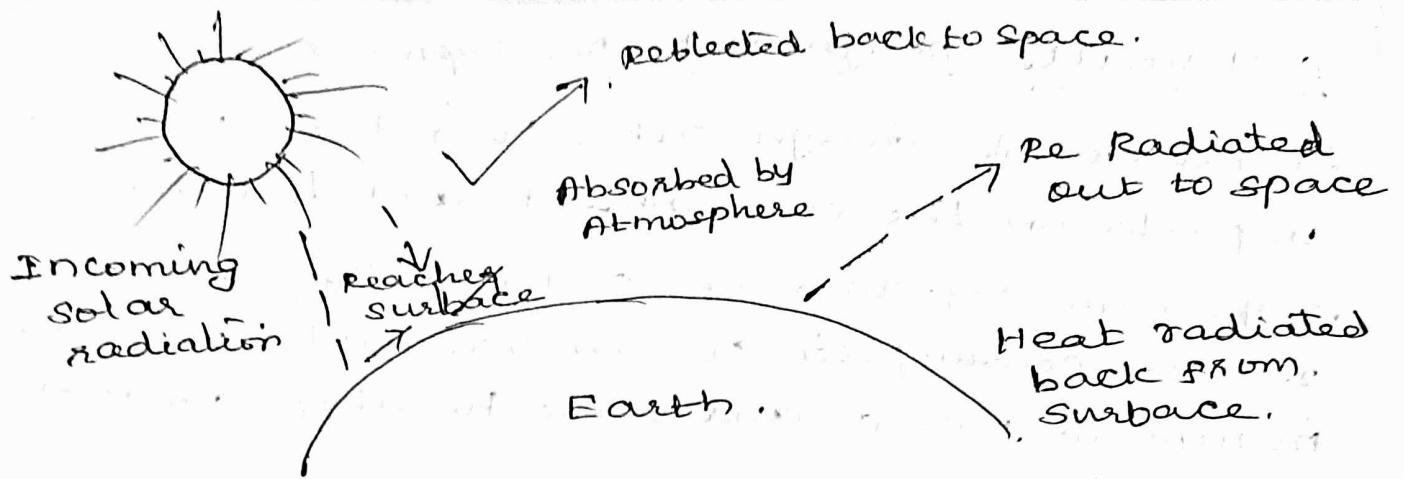 Reflected back to space.
Re Radiated
out to space
Absorbed by
Atmosphere
Incoming
solar
radiation
Reaches
surface
Heat radiated
back from.
surface.
Earth.